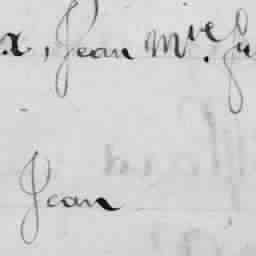 x, Jean Mie
Jean